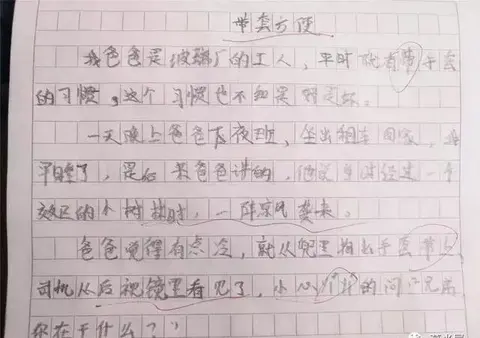 带套方便
我爸爸是玻璃厂的工人，平时就有带手套
的习惯。这个习惯也不知是好是坏。
一天晚上爸爸下夜班，坐出租车回家，
了，是后来爸爸讲的，他说当时经过一个
郊区的小树林时，一阵凉风袭来。
爸爸觉得有点冷，就从兜里掏出手套带上
司机从后视镜里看见了，小心的问“兄弟
你在干什么？”